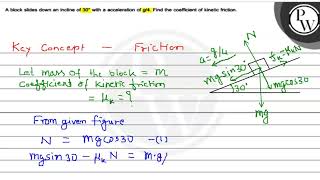 A block slides down an incline of 30° with a acceleration of g/4. Find the coefficient of kinetic friction.
Key Concept - Friction
Let mass of the block = m
coefficient of kinetic friction
= μk = ?
From given figure
N = mgcos30 -(1)
mgsin30 - μk N = m·g/
a=g/4
N
fk=μkN
mgsin30
30°
mgcos30
mg